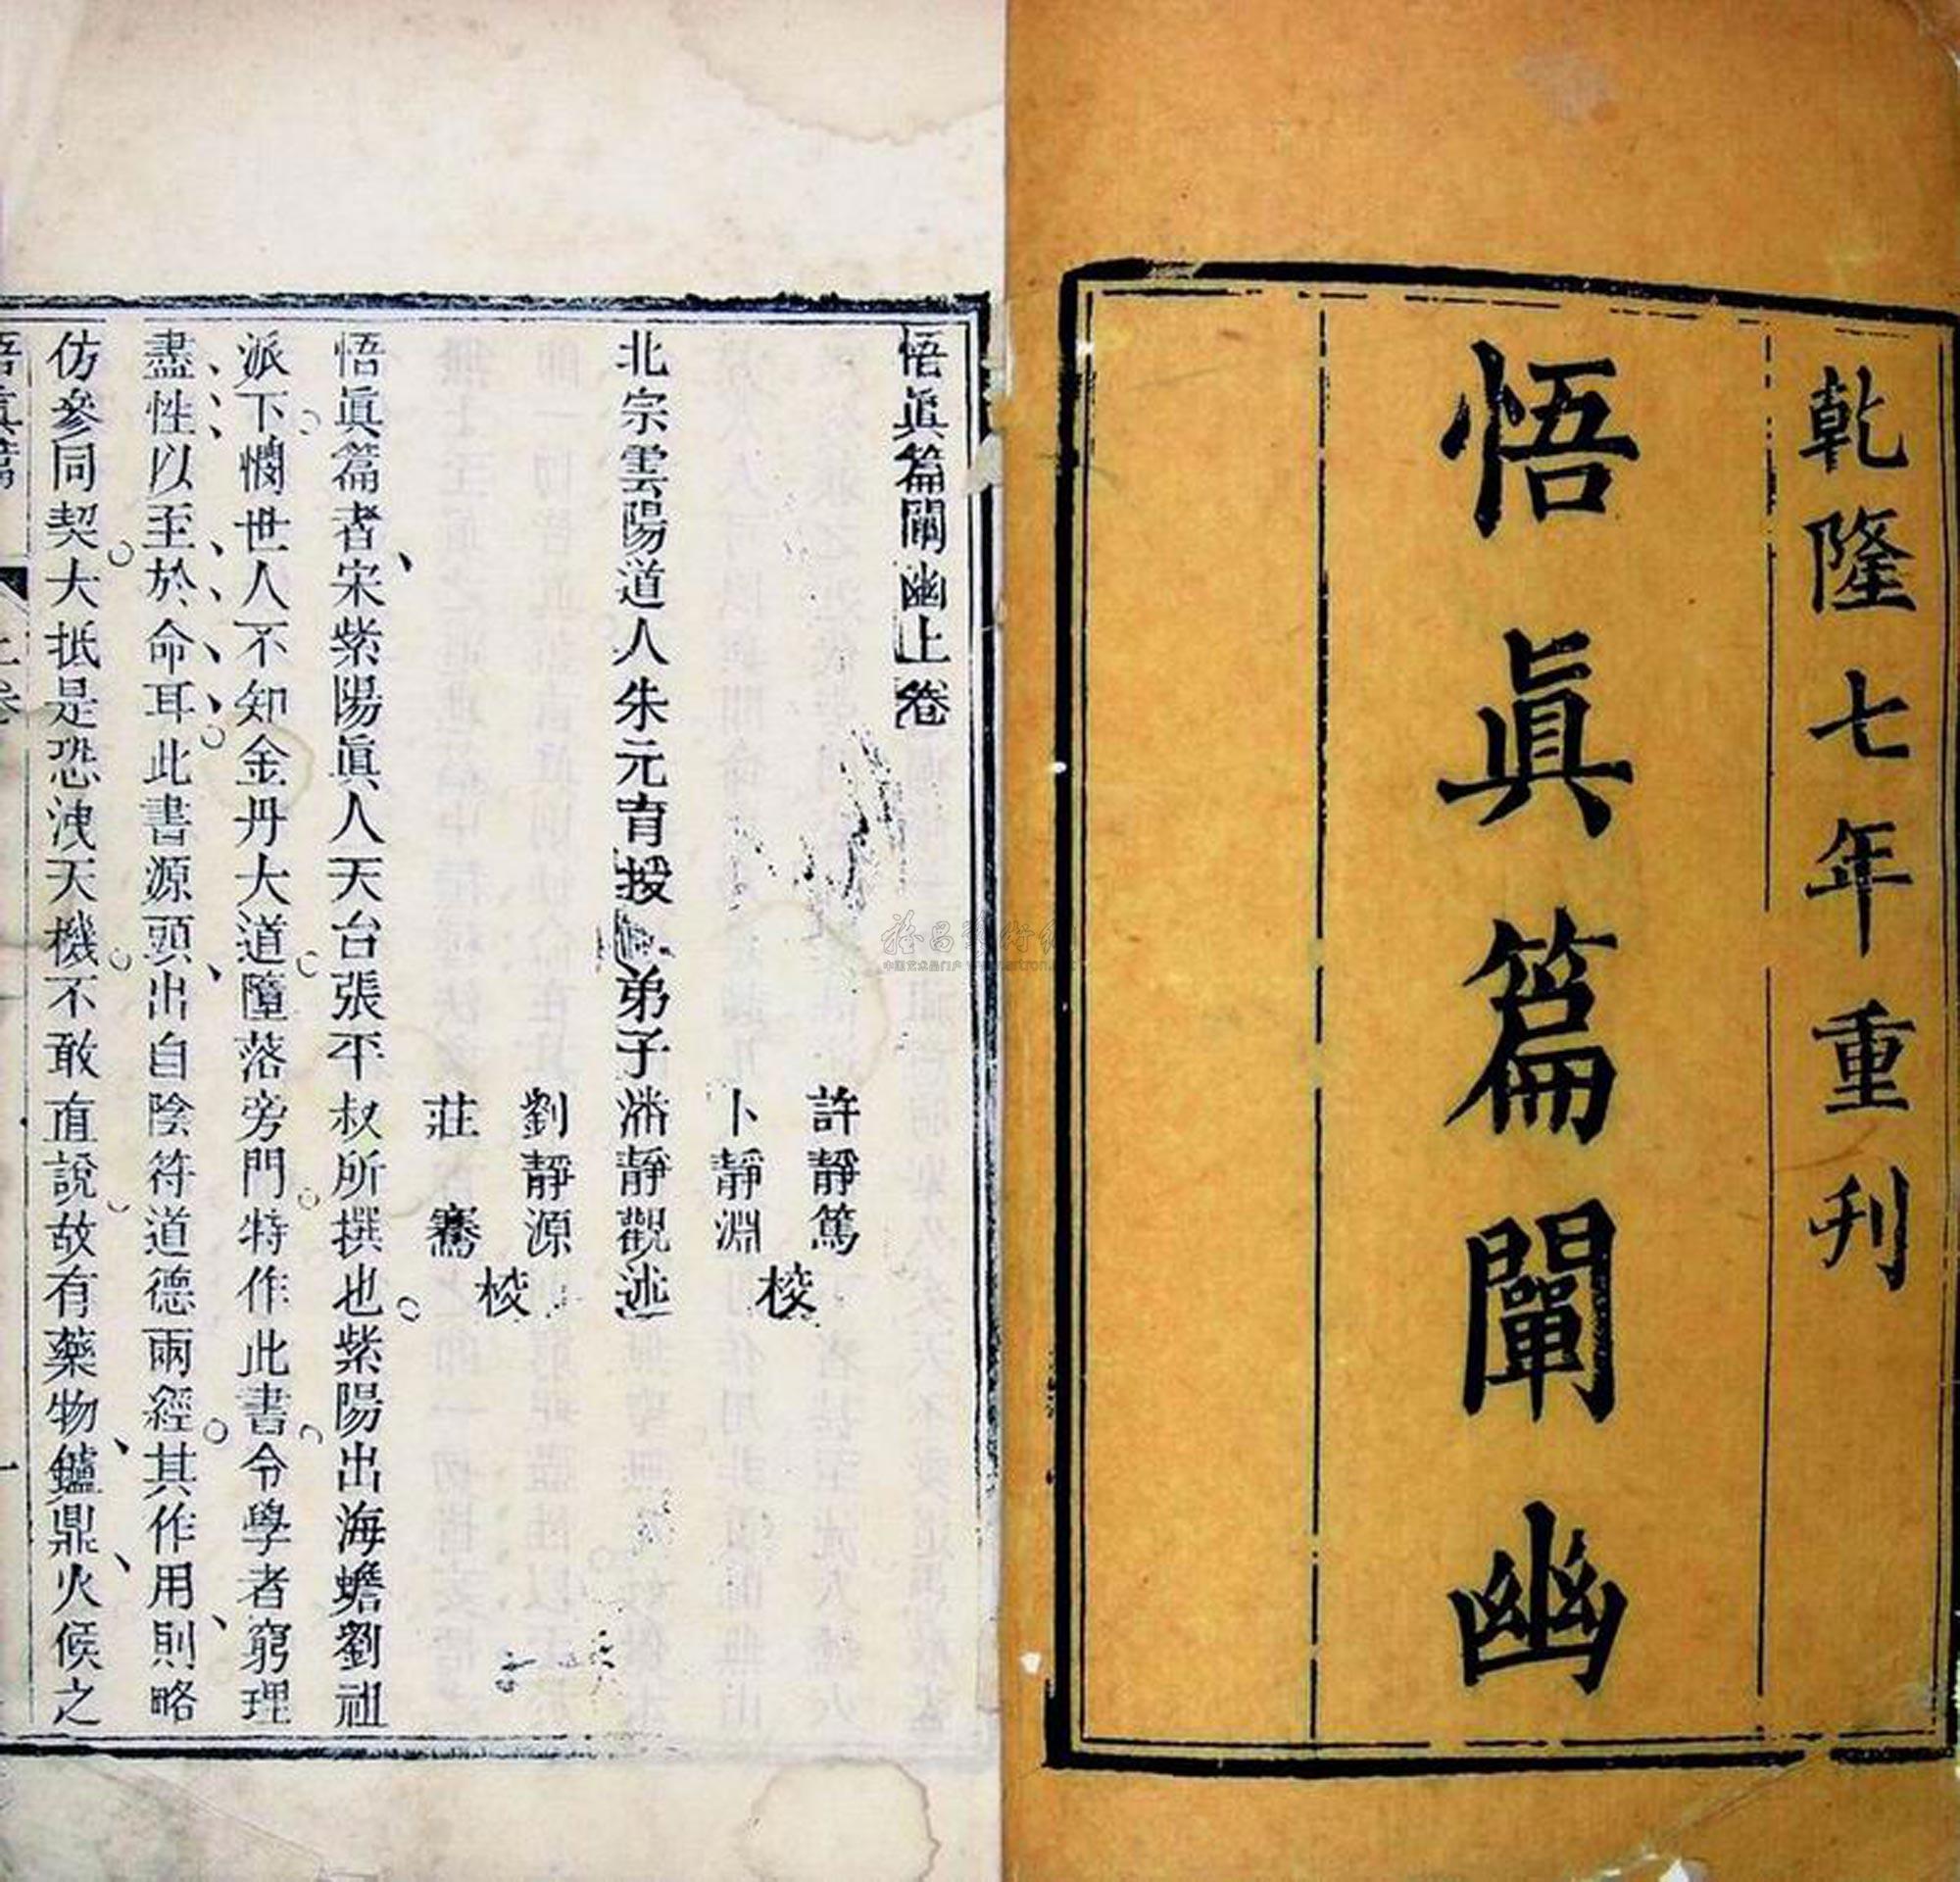 乾隆七年重刊
悟眞篇闡幽
悟眞篇闡幽上卷
許靜篤
卜靜淵
校
北宗雲陽道人朱元育授 弟子潘靜觀述
劉靜源
莊 騫
校
悟眞篇者宋紫陽眞人天台張平叔所撰也紫陽出海蟾劉祖
派下憫世人不知金丹大道墮落旁門特作此書令學者窮理
盡性以至於命耳此書源頭出自陰符道德兩經其作用則略
仿參同契大抵是恐洩天機不敢直說故有藥物鑪鼎火候之
悟眞篇 上卷 一